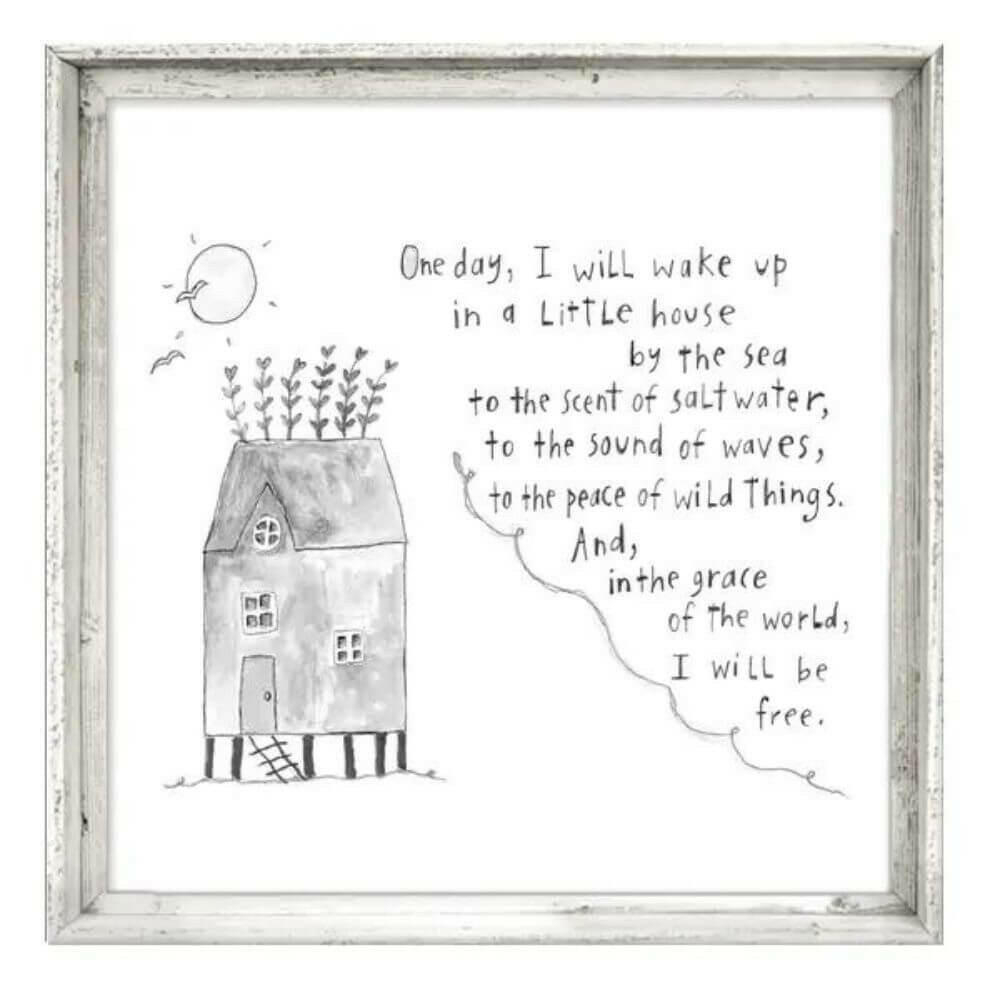 One day, I will wake up
in a little house
by the sea
to the scent of salt water,
to the sound of waves,
to the peace of wild things.
And,
in the grace
of the world,
I will be
free.